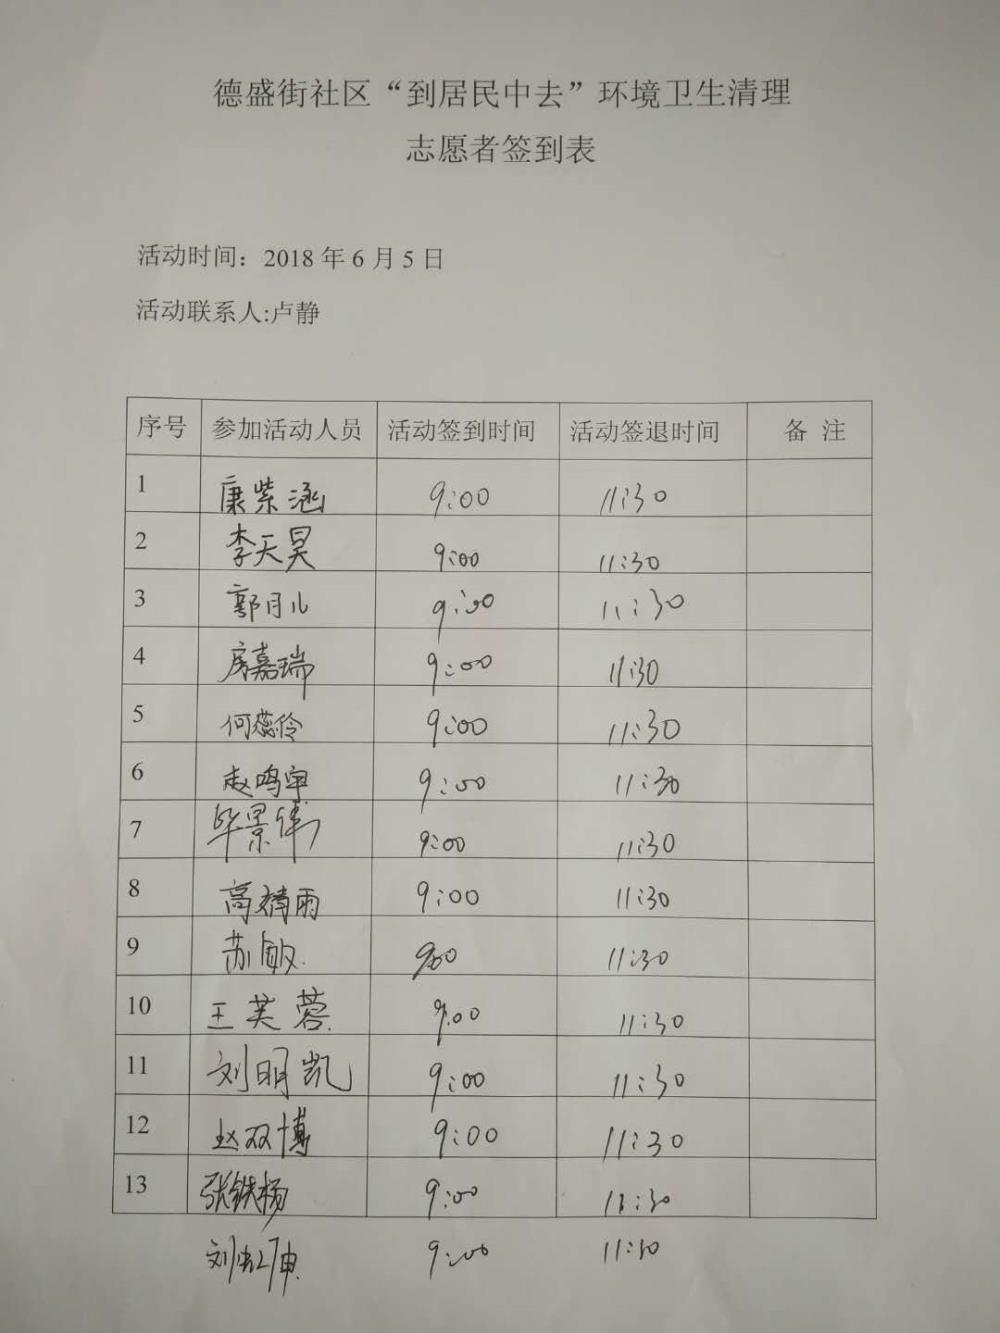 德盛街社区“到居民中去”环境卫生清理
志愿者签到表
活动时间：2018 年 6 月 5 日
活动联系人:卢静
序号 参加活动人员 活动签到时间 活动签退时间 备 注
1 康紫涵 9:00 11:30
2 李天昊 9:00 11:30
3 郭月儿 9:00 11:30
4 房嘉瑞 9:00 11:30
5 何蕊伶 9:00 11:30
6 赵鸣宇 9:00 11:30
7 毕景伟 9:00 11:30
8 高婧雨 9:00 11:30
9 苏敏 9:00 11:30
10 王芙蓉 9:00 11:30
11 刘明凯 9:00 11:30
12 赵双博 9:00 11:30
13 张铁杨 9:00 11:30
刘 9:00 11:30